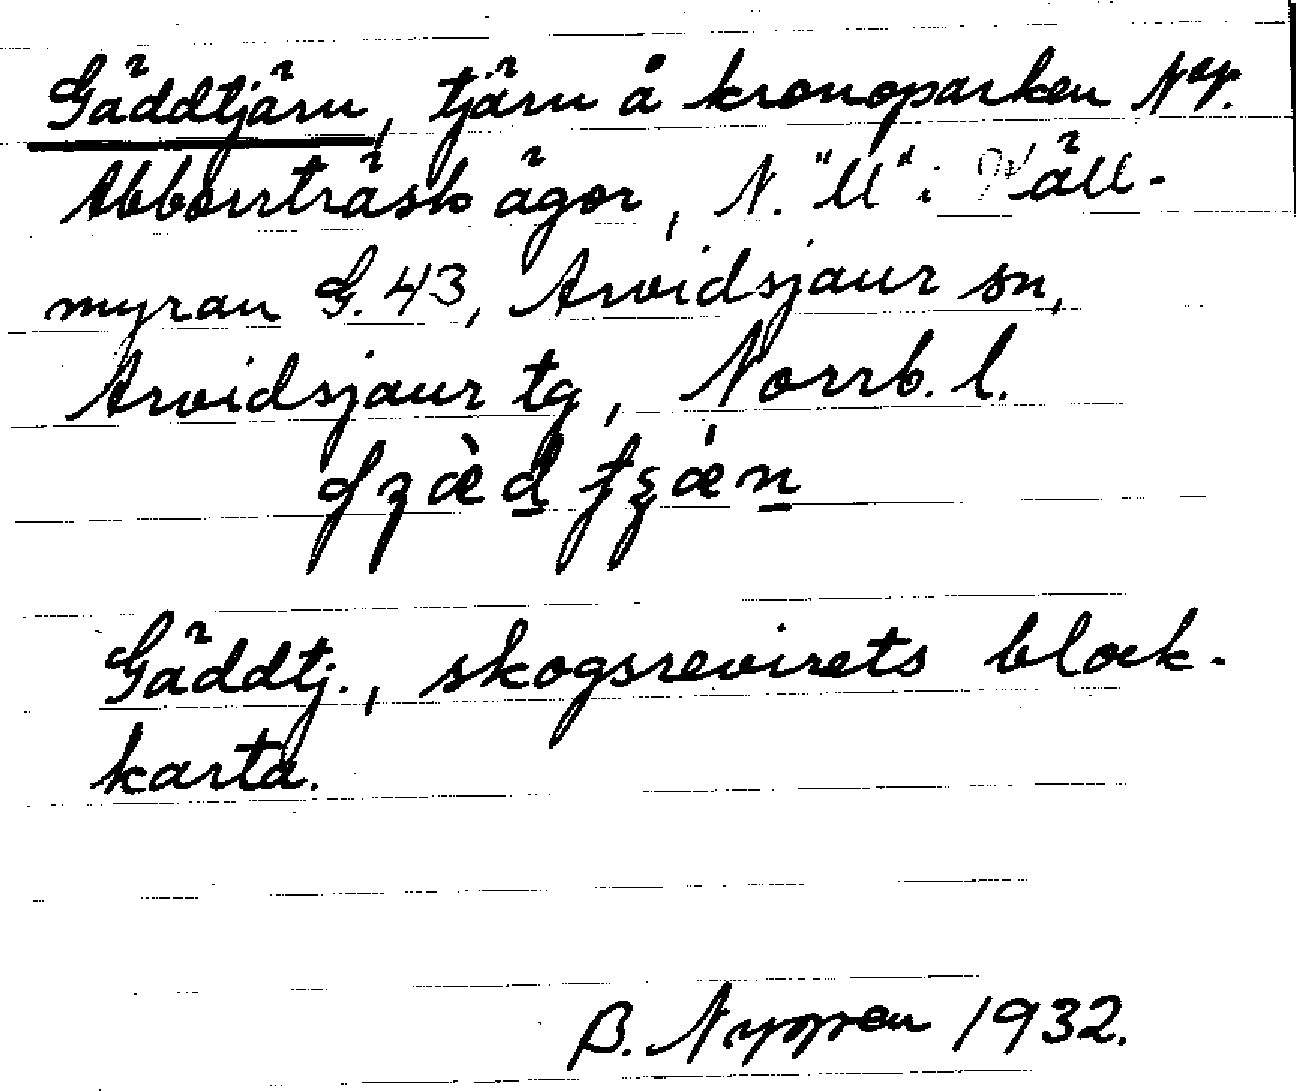 Gäddtjärn, tjärn å kronoparken
Abborrträsk ägor, N. "ll" i Käll-
myran G.43, Arvidsjaur sn,
Arvidsjaur tg, Norrb. l.
Gäddtj., skogsrevirets block-
karta.
B. 1932.